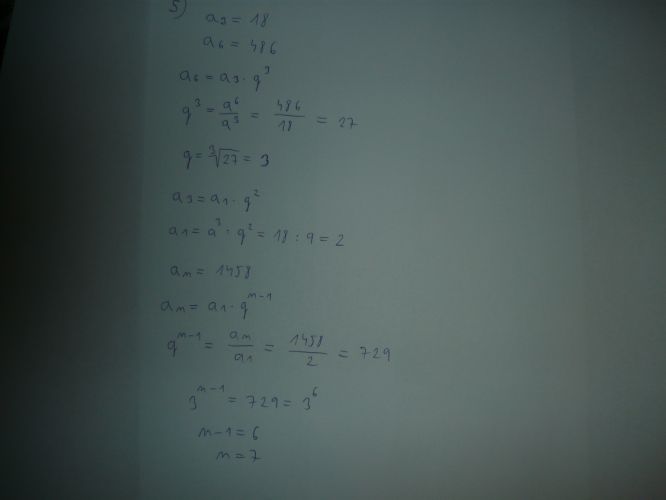 5)
a₃ = 18
a₆ = 486
a₆ = a₃ · q³
q³ = a⁶/a³ = 486/18 = 27
q = ∛27 = 3
a₃ = a₁ · q²
a₁ = a³ : q² = 18 : 9 = 2
aₙ = 1458
aₙ = a₁ · qⁿ⁻¹
qⁿ⁻¹ = aₙ/a₁ = 1458/2 = 729
3ⁿ⁻¹ = 729 = 3⁶
n-1 = 6
n = 7